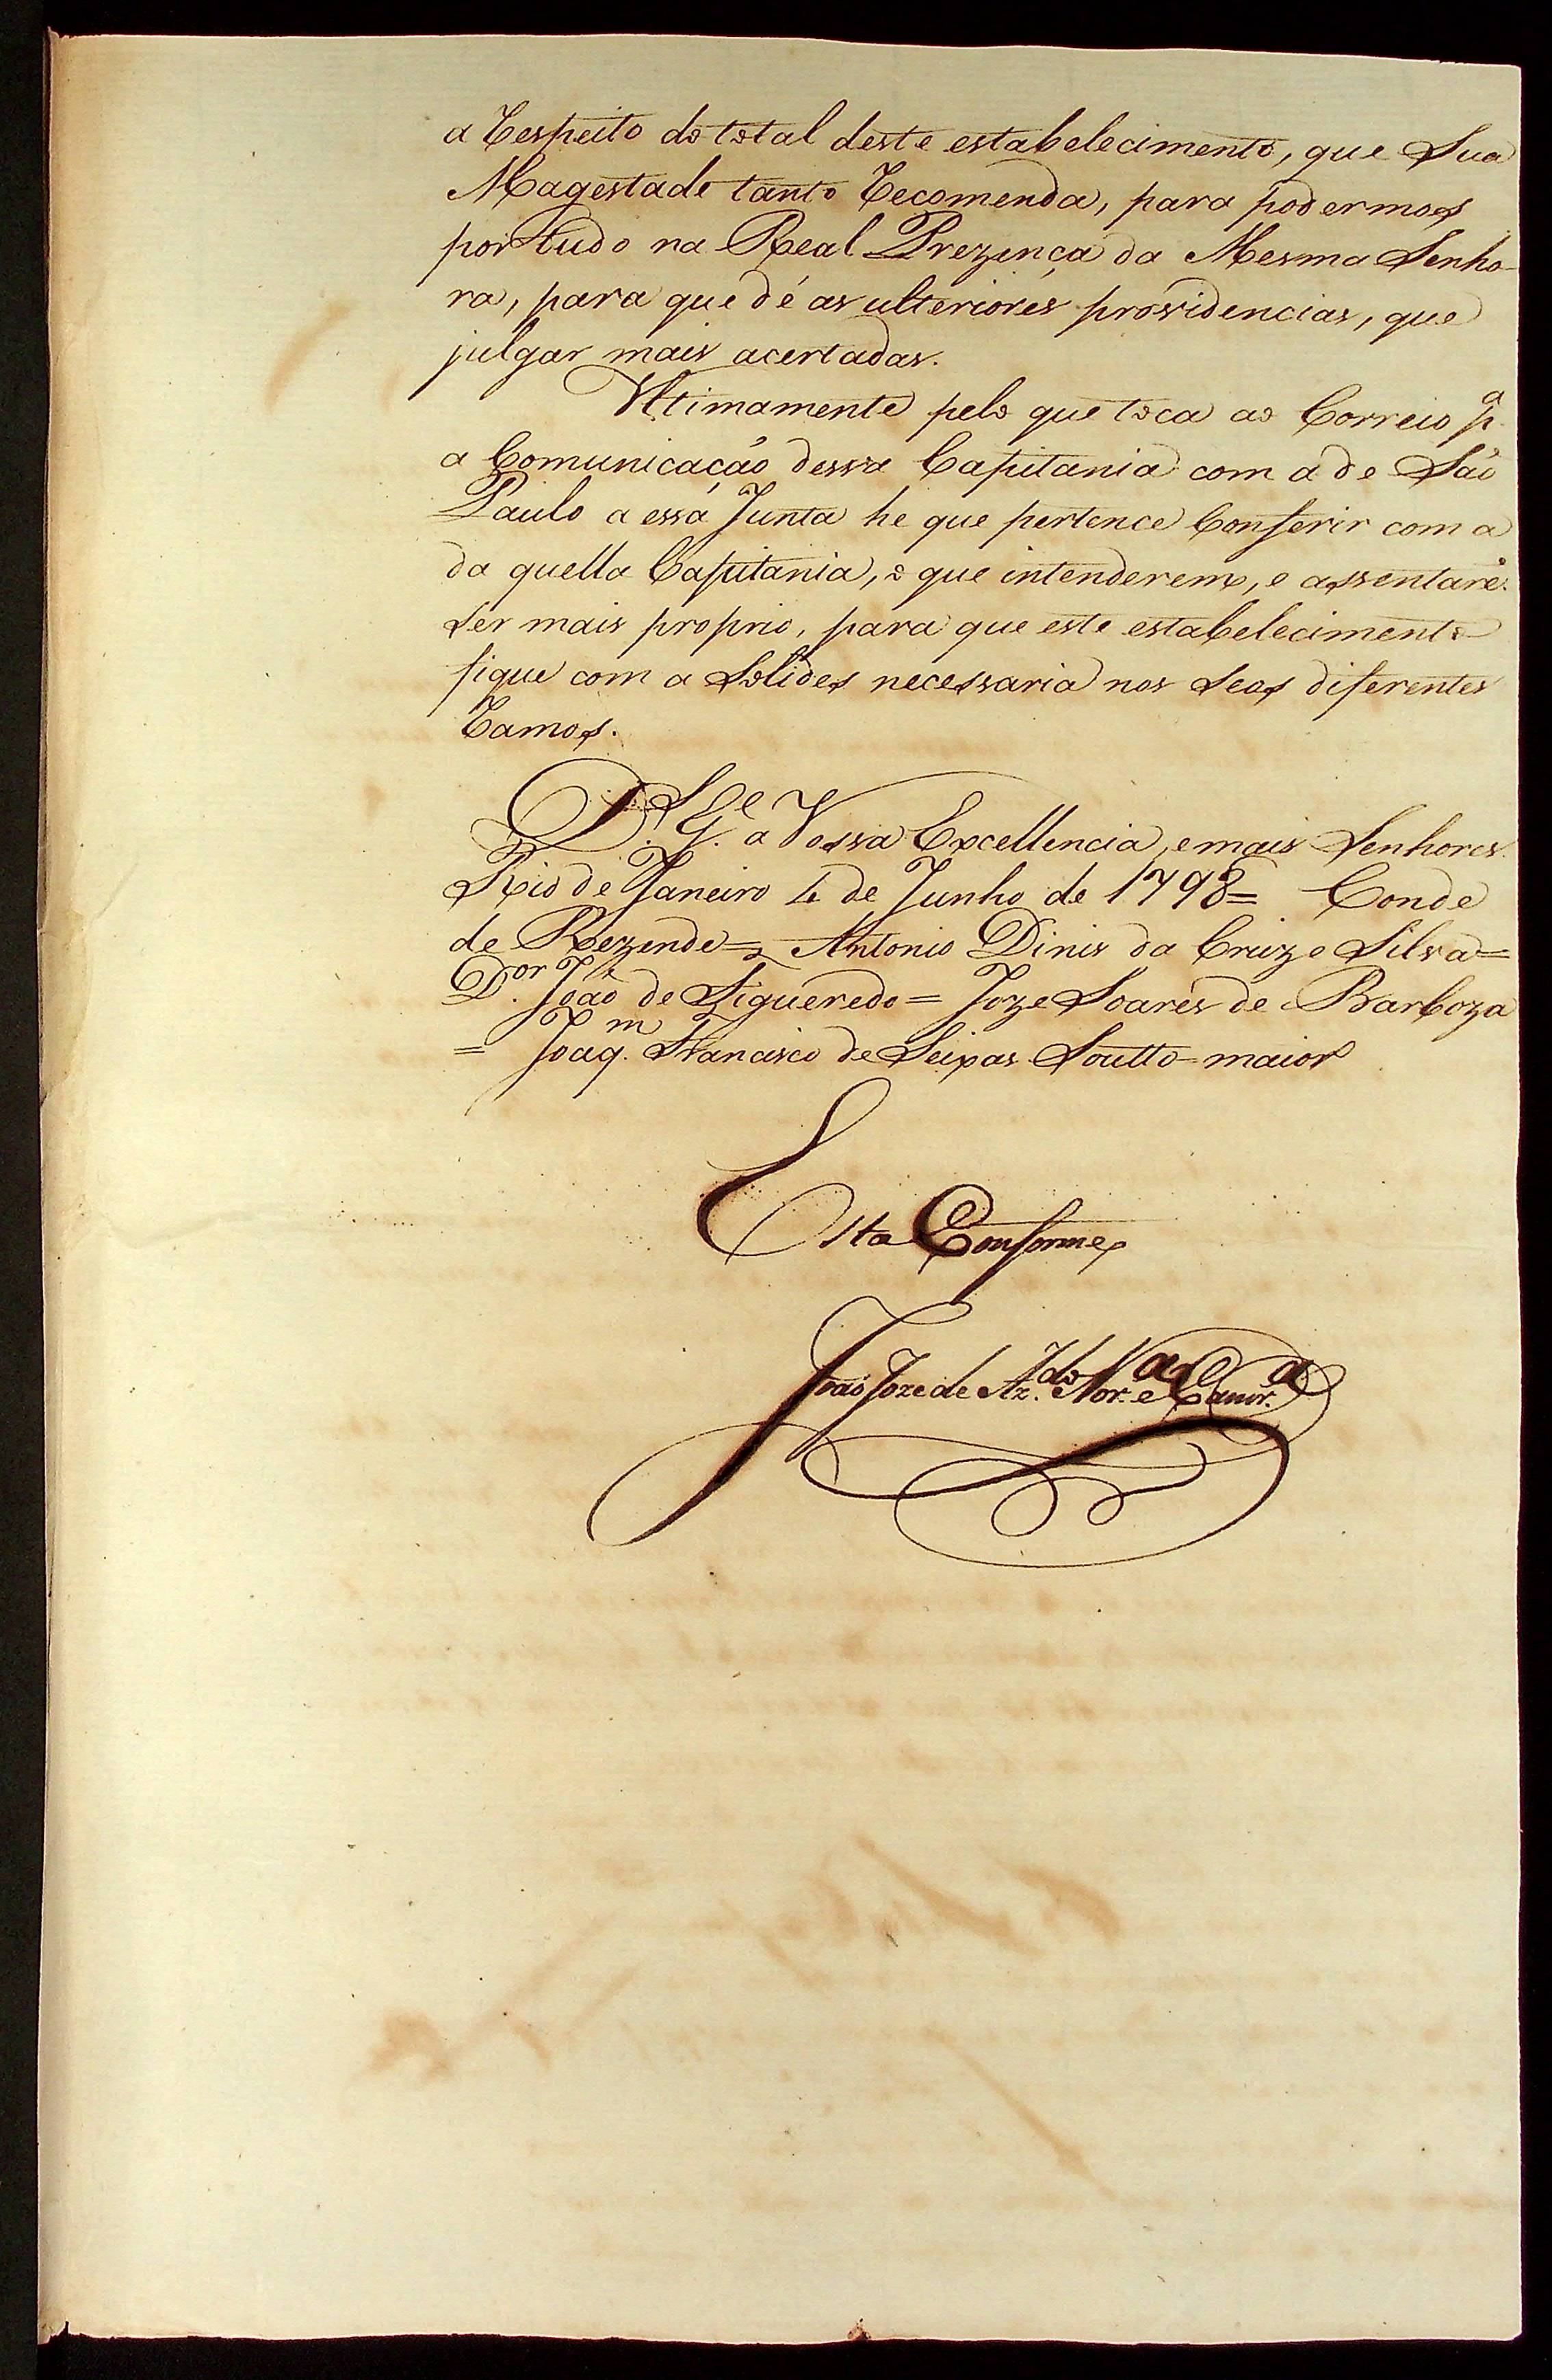 a respeito do total deste estabelecimento, que Sua
Magestade tanto recomenda, para podermos
por tudo na Real Prezença da Mesma Senho-
ra, para que dé as ulteriores providencias, que
julgar mais acertadas.
Ultimamente pelo que toca ao Correio pª
a Comunicação dessa Capitania com a de São
Paulo a essa Junta he que pertence Conferir com a
da quella Capitania, o que intenderem, e assentarẽ
ser mais proprio, para que este estabelecimento
fique com a Solides necessaria nos seos diferentes
ramos.
D.s G.e a Vossa Excellencia, e mais Senhores.
Rio de Janeiro 4 de Junho de 1798= Conde
de Rezende= Antonio Dinis da Cruz e Silva=
D.or João de Figueredo= Joze Soares de Barboza
= Joaq.m Francisco de Seixas Soutto-maior
Esta Conforme
João Joze de Az.do Nor.a e Camr.a